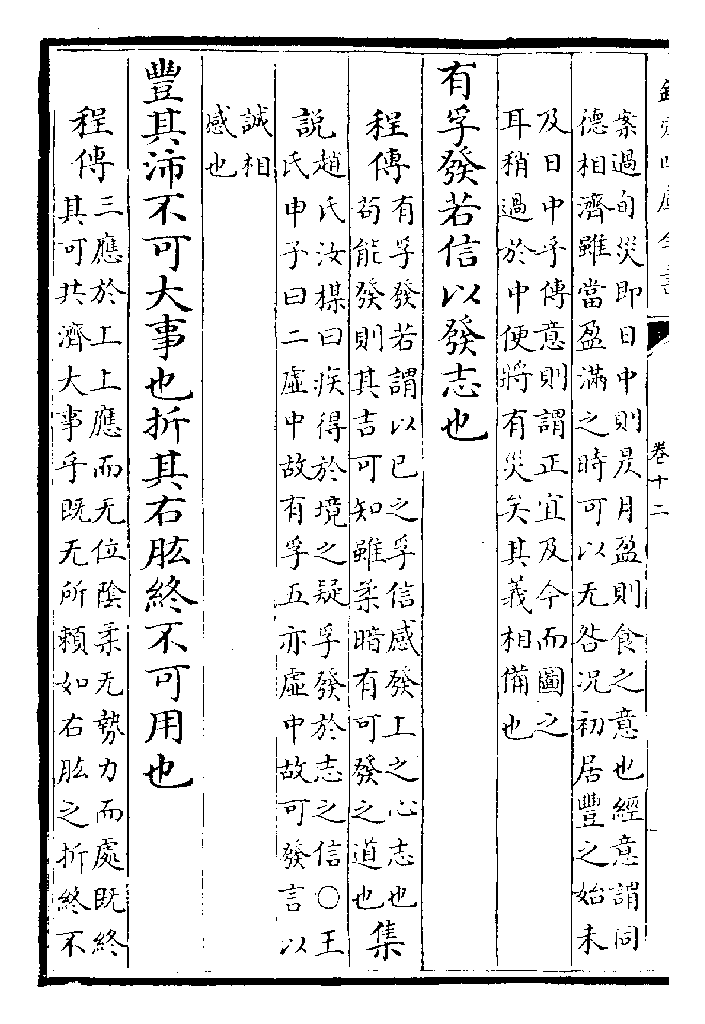 欽定四庫全書
卷十二
案過旬災即日中則昃月盈則食之意也經意謂同
德相濟雖當盈滿之時可以无咎况初居豐之始未
及日中乎傳意則謂正宜及今而圖之
耳稍過於中便將有災矣其義相備也
有孚發若信以發志也
程傳有孚發若謂以已之孚信感發上之心志也
苟能發則其吉可知雖柔暗有可發之道也集
説趙氏汝楳曰疾得於境之疑孚發於志之信〇王
氏申子曰二虛中故有孚五亦虛中故可發言以
誠相
感也
豐其沛不可大事也折其右肱終不可用也
程傳三應於上上應而无位陰柔无勢力而處既終
其可共濟大事乎既无所賴如右肱之折終不